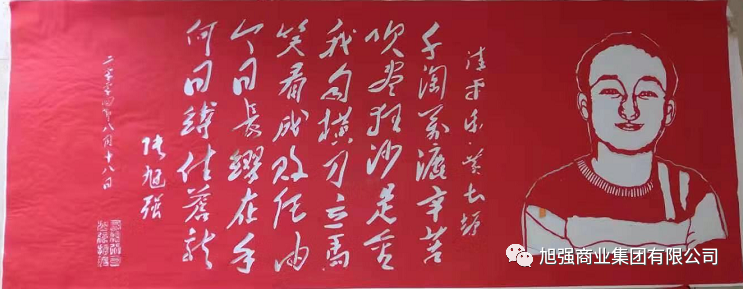 清平乐·
千淘万漉辛苦
吹尽狂沙是金
我自横刀立马
笑看成败任由
今日长缨在手
何日缚住苍龙
张旭强
二零零四年八月十八日
旭强商业集团有限公司